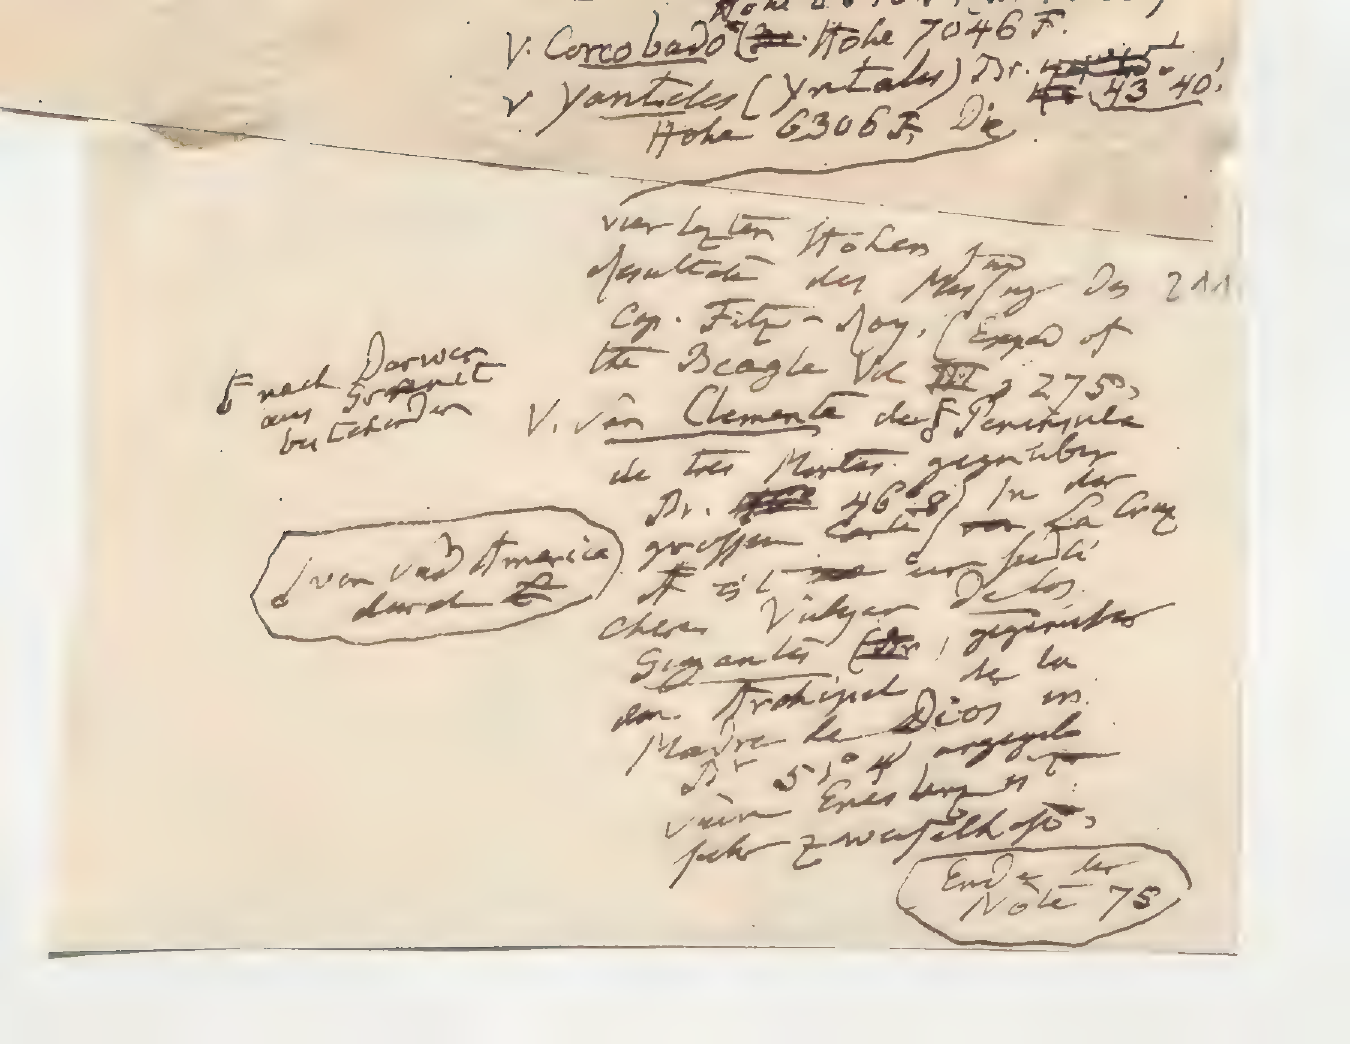 V. Corcobado Höhe 7046 F.
V Yanteles (Yntales) Br. 43° 40',
Höhe 6306 F, Die
vier letzten Höhen sind
Resultate der Messung des
Cap. Fitz-Roy. (Exped of
the Beagle Vol III p 275,
V. San Clemente der Peninsula
de tres Montes gegenüber
Br. 46° 8' In der
grossen Carte La Cruz
ist ein südli
cherer Vulkan De los
Gigantes gegenüber
dem Archipel de la
Madre de Dios in
Br 51° 4' angegeben
seine Existenz ist
sehr zweifelhaft,
Ende der
Note 75
F nach Darwin
aus Granit
bestehenden
von Süd America
durch
211